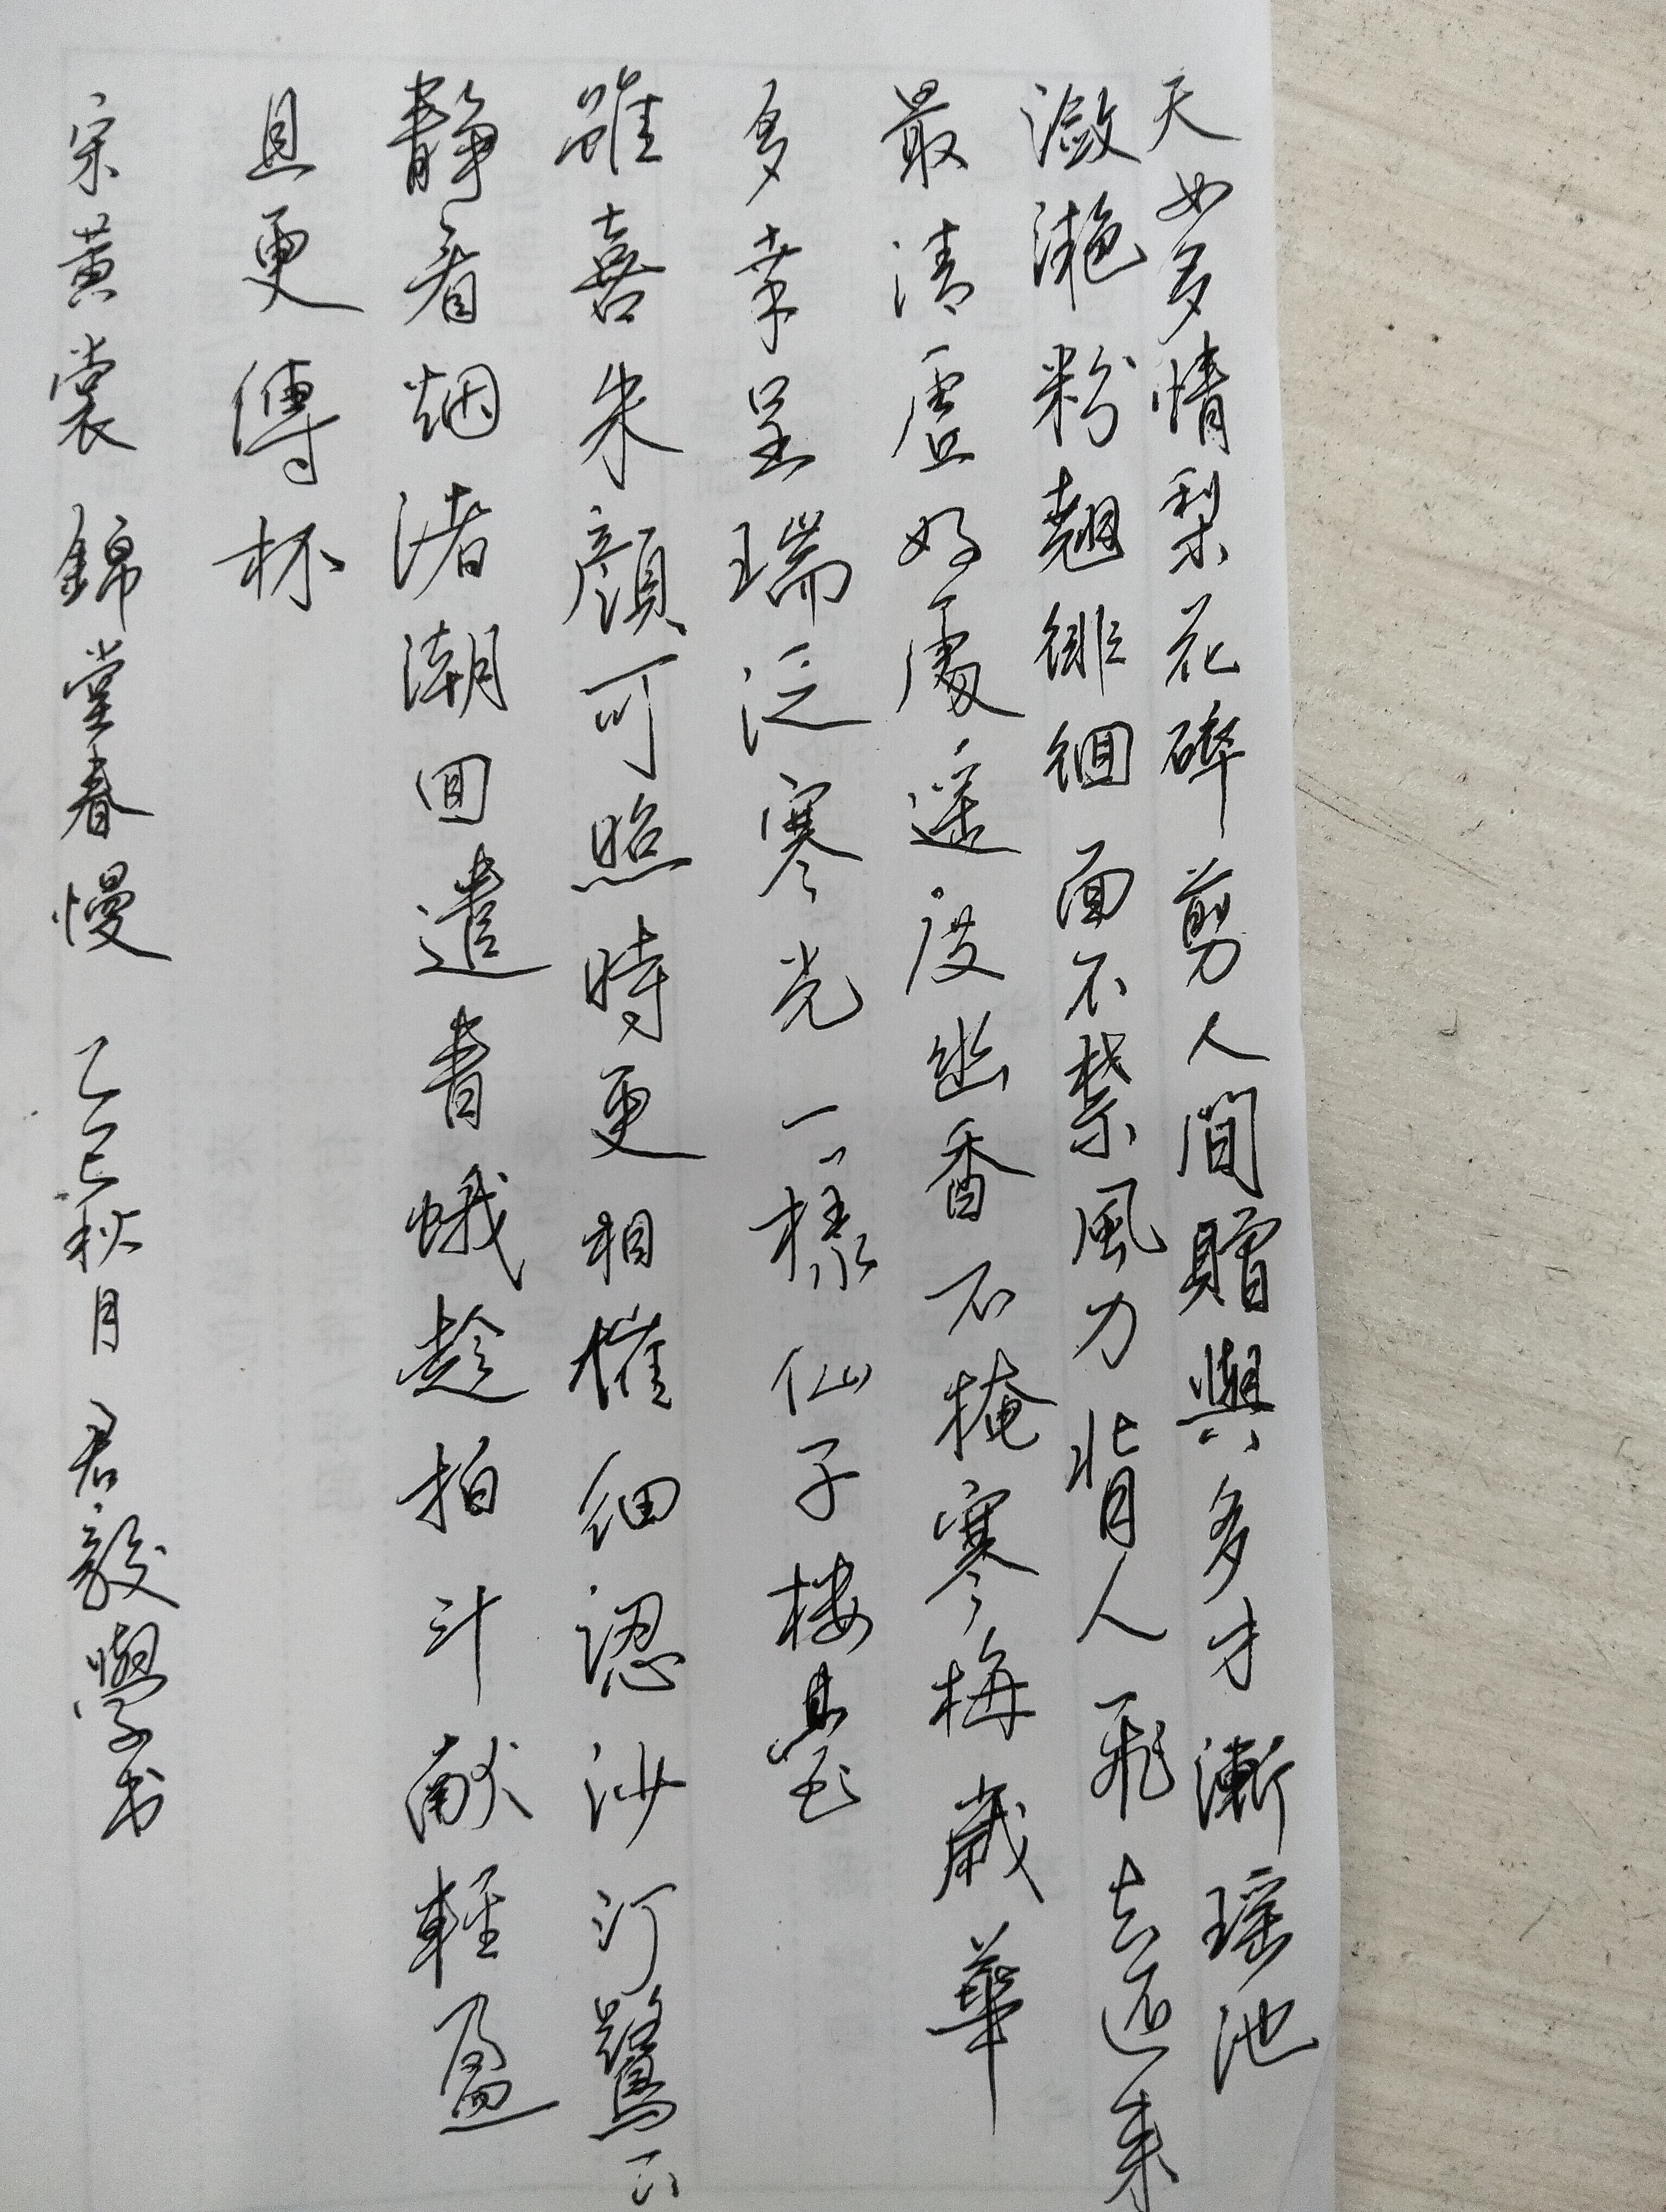 天女多情梨花碎剪人間贈與多才漸瑶池
瀲灧粉翹徘徊面不禁風力背人飛去还来
最清虛好處遥度幽香不掩寒梅歲華
多幸呈瑞泛寒光一樣仙子楼臺
雖喜朱顏可照時更相催細認沙汀鷺下
靜看烟渚潮回遣青蛾趁拍斗献輕盈
且更傳杯
宋黄裳 錦堂春慢 乙巳秋月 君毅學书